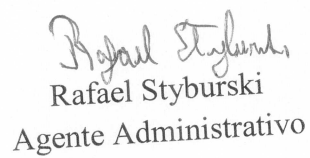 Rafael Styburski
Rafael Styburski
Agente Administrativo